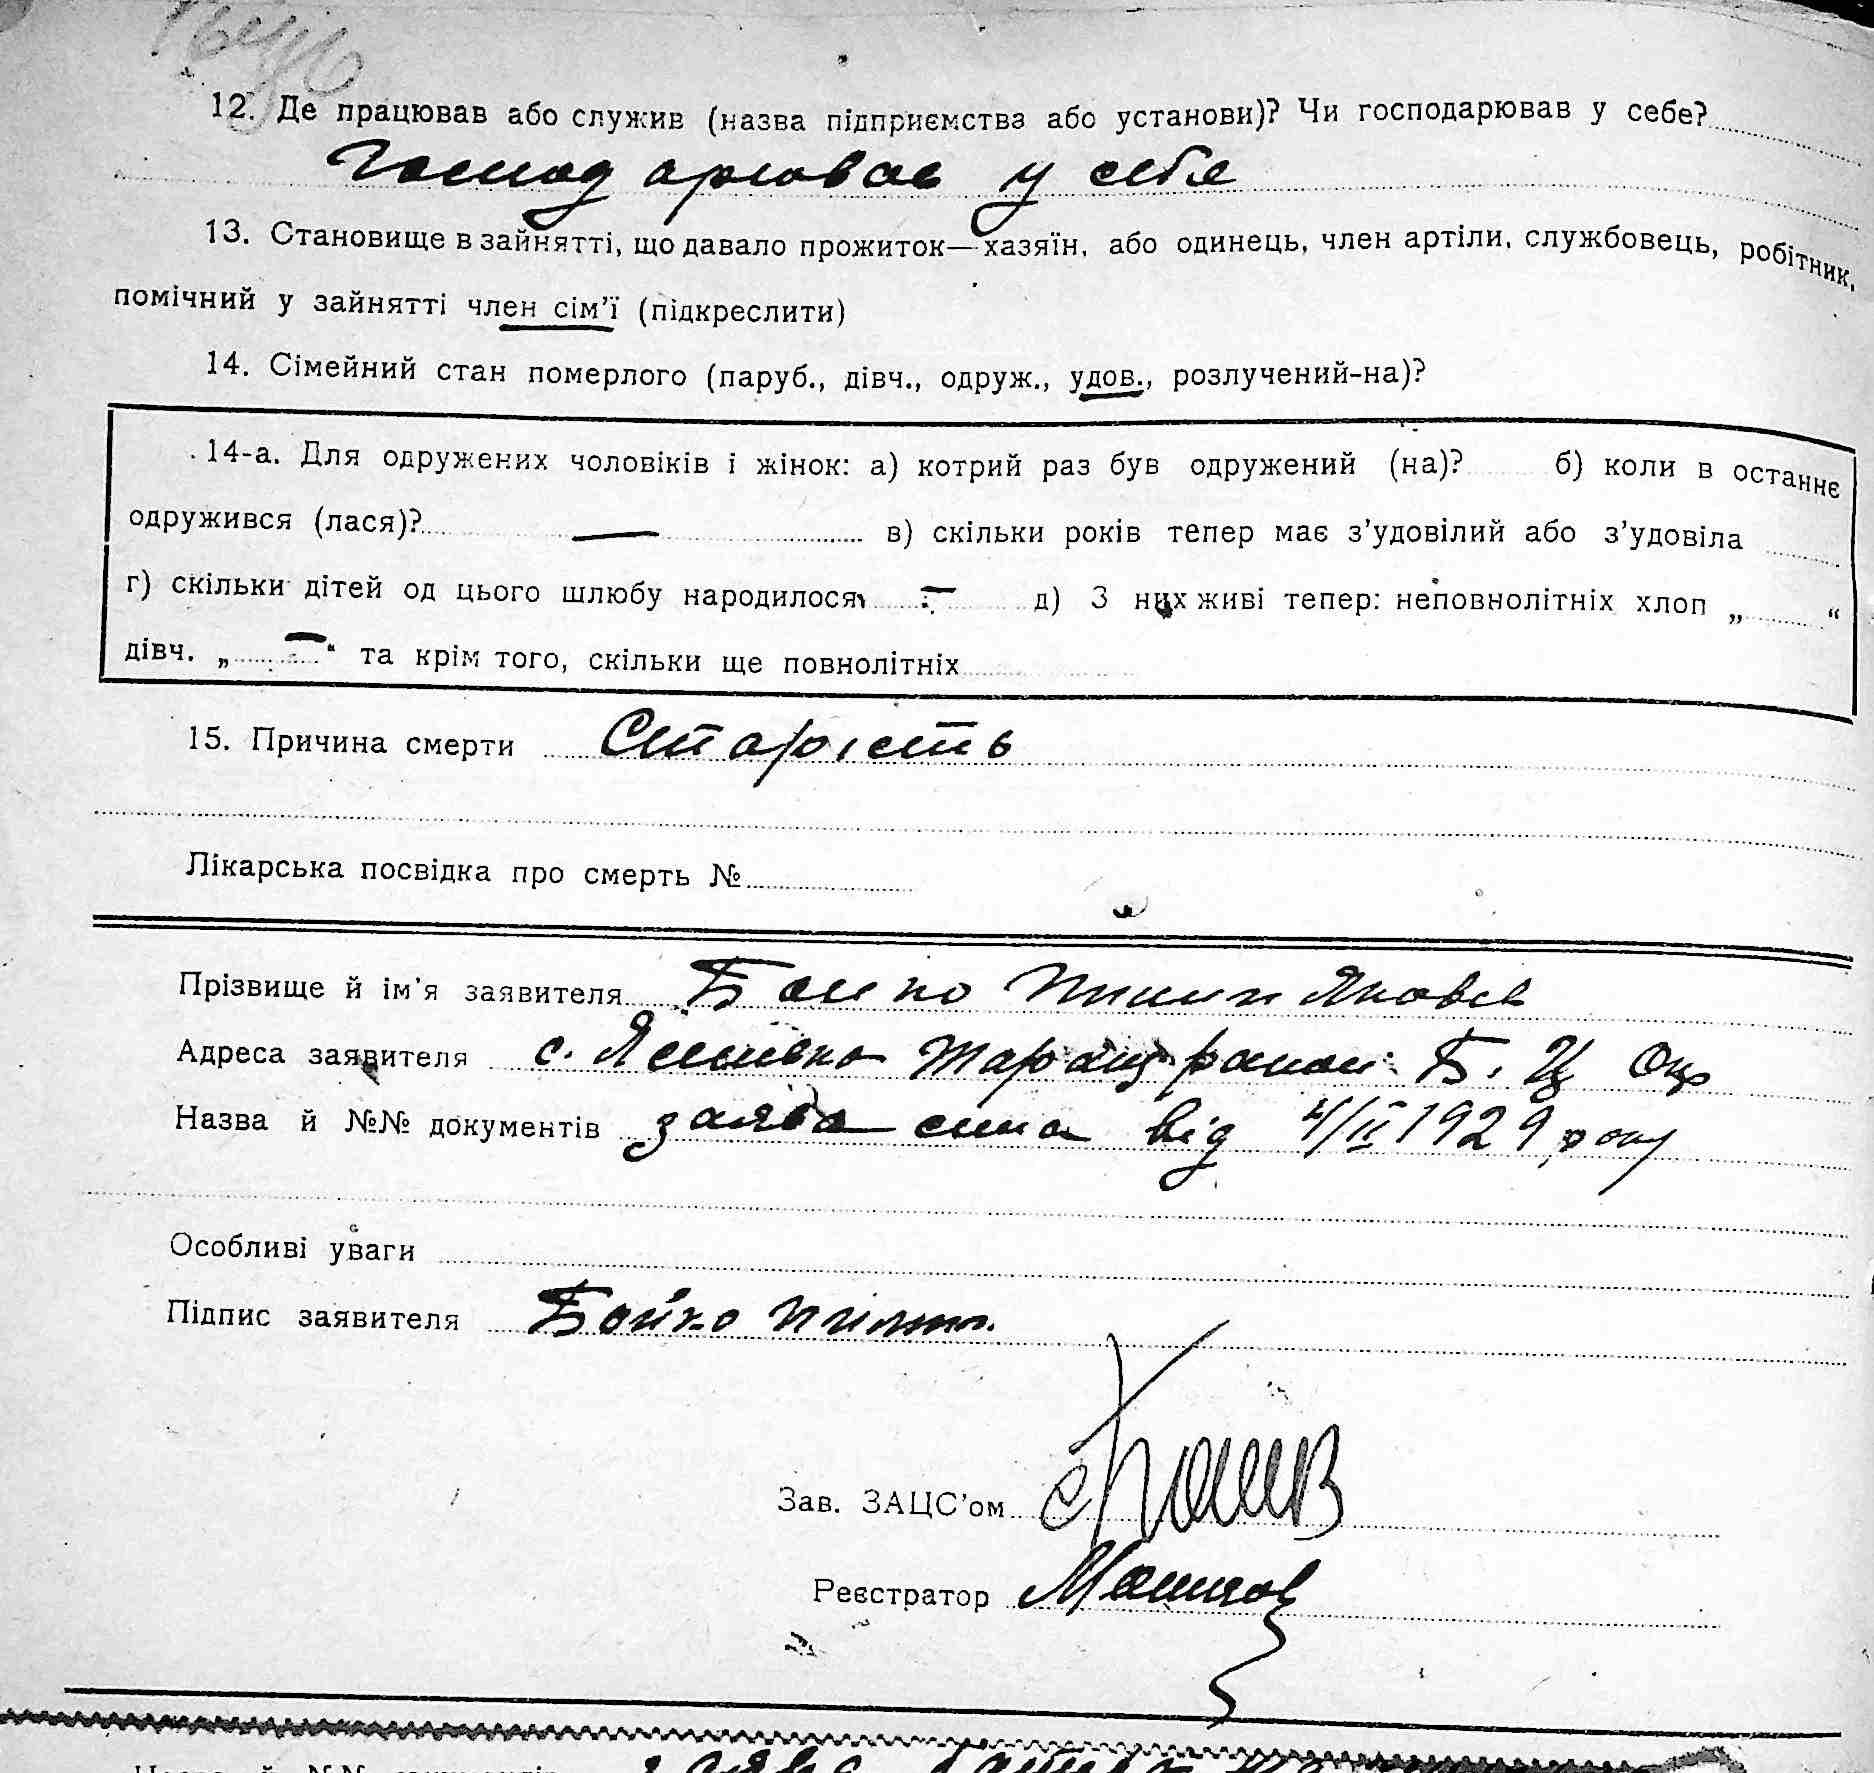 12. Де працював або служив (назва підприємства або установи)? Чи господарював у себе?
Господарював у себе
13. Становище в зайнятті, що давало прожиток—хазяїн, або одинець, член артіли, службовець, робітник,
помічний у зайнятті член сім'ї (підкреслити)
14. Сімейний стан померлого (паруб., дівч., одруж., удов., розлучений-на)?
14-а. Для одружених чоловіків і жінок: а) котрий раз був одружений (на)? б) коли в останнє
одружився (лася)? — в) скільки років тепер має з'удовілий або з'удовіла
г) скільки дітей од цього шлюбу народилося — д) З них живі тепер: неповнолітніх хлоп „ “
дівч. „ — “ та крім того, скільки ще повнолітніх
15. Причина смерти Старість
Лікарська посвідка про смерть №
Прізвище й ім'я заявителя Бойко Пилип Яковів
Адреса заявителя с. Ясенівка Таращ. район Б. Ц Окр
Назва й №№ документів заява сина від 4/II 1929 року
Особливі уваги
Підпис заявителя Бойко Пилип.
Зав. ЗАЦС'ом
Реєстратор